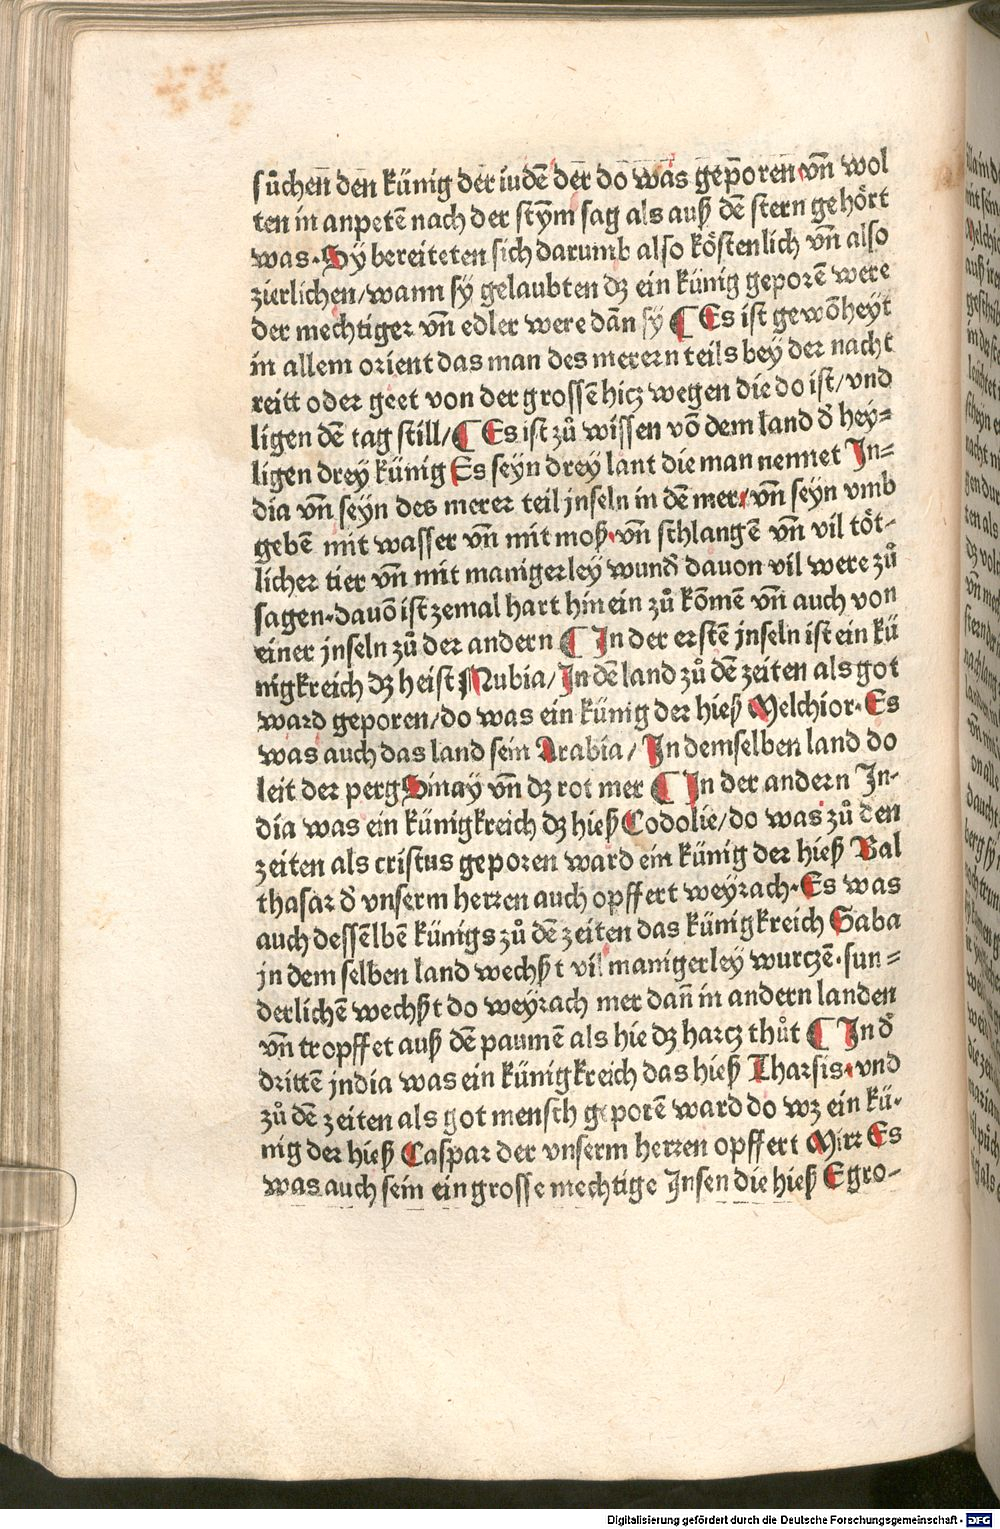 sůchen den künig der iudē der do was gepōren vn̄ wol
ten in anpetē nach der stym̄ sag als auß dē stern gehört
was. Sy bereiteten sich darumb also köstenlich vn̄ also
zierlichen/wann sy gelaubten dz ein künig geporē were
der mechtiger vn̄ edler were dān sy ¶ Es ist gewōheyt
in allem orient das man des merern teils bey der nacht
reitt oder geet von der grossē hicz wegen die do ist/vnd
ligen dē tag still/¶ Es ist zů wissen vō dem land d̄ hey⸗
ligen drey künig Es seyn drey lant die man nennet In⸗
dia vn̄ seyn des merer teil jnseln in dē mer. vn̄ seyn vmb
gebē mit wasser vn̄ mit moß. vn̄ schlangē vn̄ vil töt⸗
licher tier vn̄ mit manigerley wund̄ dauon vil were zů
sagen. dauō ist zemal hart hin ein zů kōmē vn̄ auch von
einer jnseln zů der andern ¶ In der erstē jnseln ist ein kü
nigkreich dz heist Nubia/In dē land zů dē zeiten als got
ward geporen/do was ein künig der hieß Melchior. Es
was auch das land sein Arabia/ In demselben land do
leit der perg Sinay vn̄ dz rot mer ¶ In der andern In⸗
dia was ein künigkreich dz hieß Codolie/do was zů den
zeiten als cristus geporen ward ein künig der hieß Bal
thasar d̄ vnserm herren auch opffert weyrach. Es was
auch dessēlbē künigs zů dē zeiten das künigkreich Saba
jn dem selben land wechßt vil manigerley wurczē. sun⸗
derlichē wechßt do weyrach mer dan̄ in andern landen
vn̄ tropffet auß dē paumē als hie dz harcz thůt ¶ In d̄
drittē jndia was ein künigkreich das hieß Tharsis. vnd
zů dē zeiten als got mensch geporē ward do wz ein kü⸗
nig der hieß Caspar der vnserm herren opffert Mirr Es
was auch sein ein grosse mechtige Jnsen die hieß Egro⸗
Digitalisierung gefördert durch die Deutsche Forschungsgemeinschaft - DFG